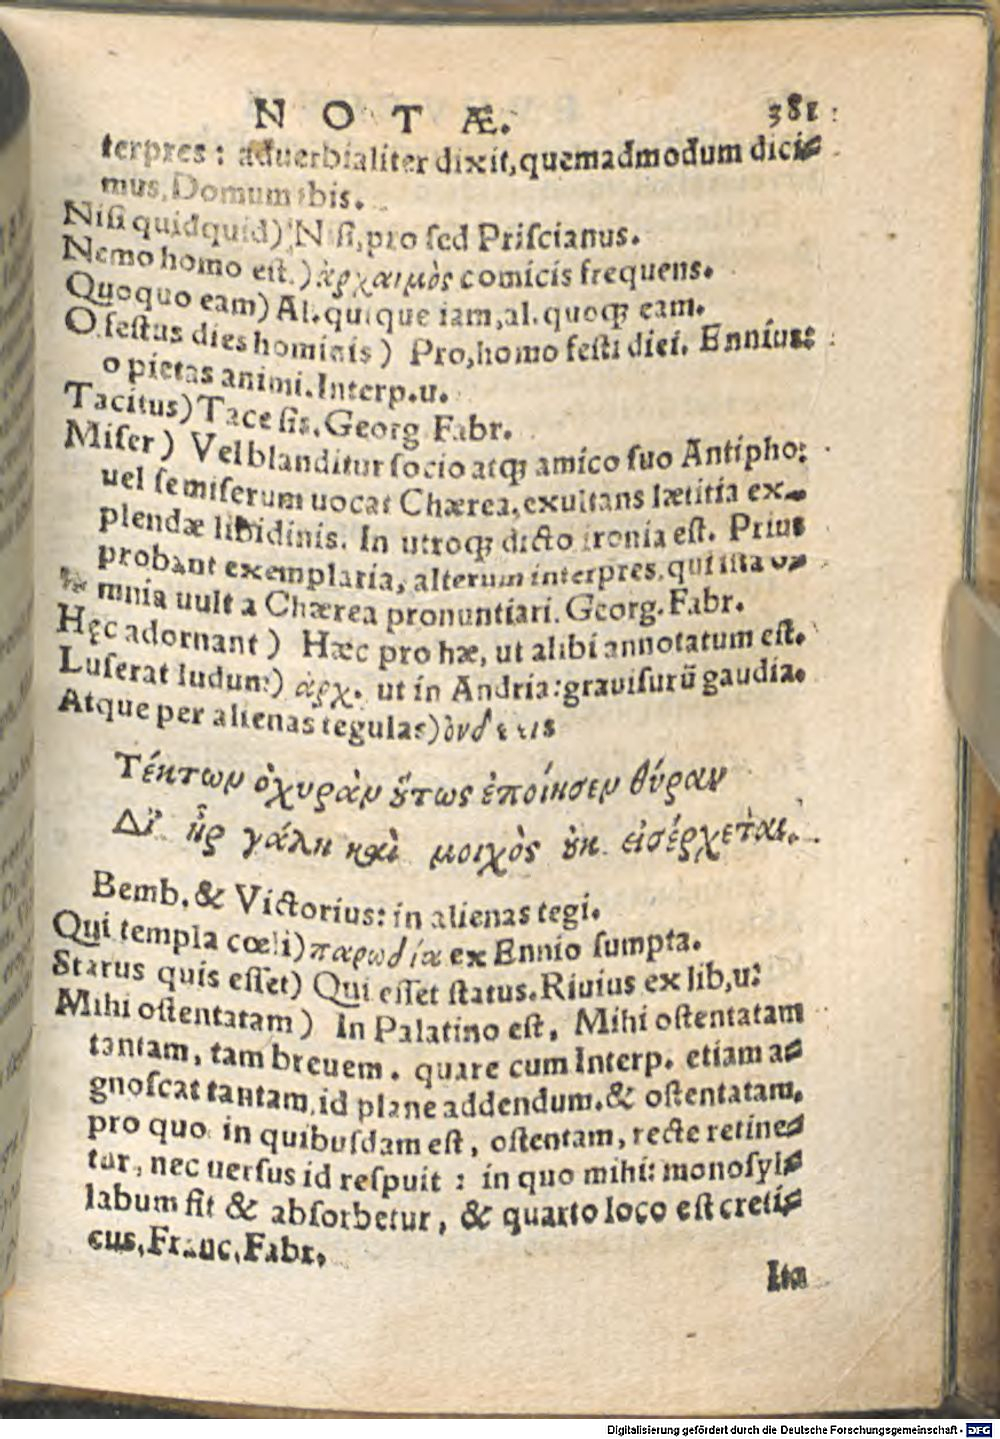 NOTÆ. 381
terpres: aduerbialiter dixit, quemadmodum dici-
mus, Domum ibis.
Niſi quidquid) Niſi, pro ſed Priſcianus.
Nemo homo eſt.) ἀρχαισμὸς comicis frequens.
Quoquo eam) Al. quique iam, al. quoqꝫ eam.
O feſtus dies hominis) Pro, homo feſti diei. Ennius:
o pietas animi. Interp. u.
Tacitus) Tace ſis. Georg Fabr.
Miſer) Vel blanditur ſocio atqꝫ amico ſuo Antipho:
uel ſemiſerum uocat Chærea, exultans lætitia ex-
plendæ libidinis. In utroqꝫ dicto ironia eſt. Prius
probant exemplaria, alterum interpres, qui iſta o-
mnia uult a Chærea pronuntiari. Georg. Fabr.
Hęc adornant) Hæc pro hæ, ut alibi annotatum eſt.
Luſerat ludum) ἀρχ. ut in Andria: grauiſurũ gaudia.
Atque per alienas tegulas)
Τέκτων ὀχυρὰν ὅτως ἐποίησεν θύραν
Δι' ἧς γάλη καὶ μοιχὸς ὐκ εἰσέρχεται.
Bemb. & Victorius: in alienas tegi.
Qui templa cœli) παρωδία ex Ennio ſumpta.
Starus quis eſſet) Qui eſſet ſtatus. Riuius ex lib, u:
Mihi oſtentatam) In Palatino eſt, Mihi oſtentatam
tantam, tam breuem. quare cum Interp. etiam a-
gnoſcat tantam, id plane addendum. & oſtentatam,
pro quo in quibuſdam eſt, oſtentam, recte retine-
tur, nec uerſus id reſpuit: in quo mihi: monoſyl-
labum fit & abſorbetur, & quarto loco eſt creti-
cus, Franc, Fabr.
Ita
Digitalisierung gefördert durch die Deutsche Forschungsgemeinschaft - DFG